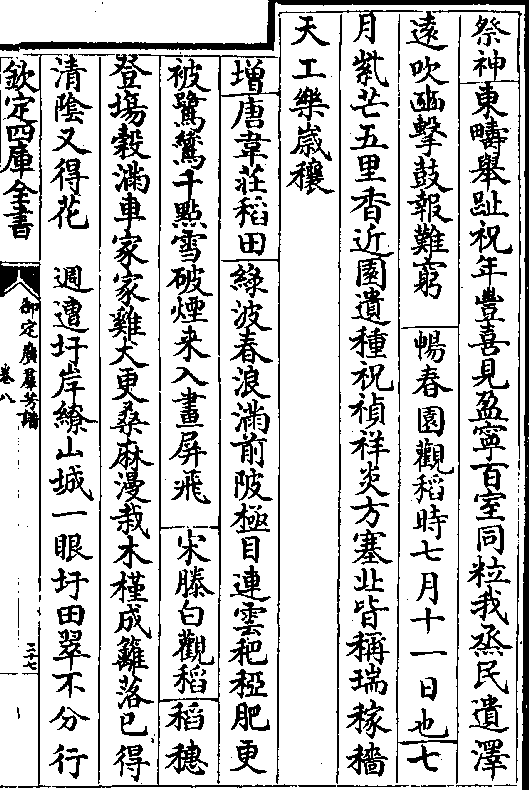 祭神東疇舉趾祝年豐喜見盈寧百室同粒我烝民遺澤
遠吹豳擊鼓報難窮 暢春園觀稻時七月十一日也七
月紫芒五里香近園遺種祝禎祥炎方塞北皆稱瑞稼穡
天工樂歲穰
增唐韋莊稻田綠波春浪滿前陂極目連雲䆉稏肥更
被鷺鷥千點雪破煙來入畫屏飛 宋滕白觀稻稻穗
登塲穀滿車家家雞犬更桑麻漫栽木槿成籬落已得
清陰又得花 週遭圩岸繚山城一眼圩田翠不分行
欽定四庫全書
御定廣羣芳譜
卷八
三七